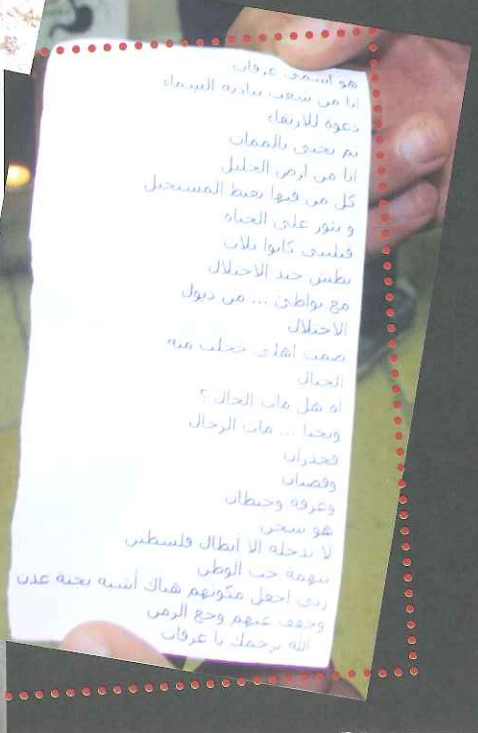 هو اسمى عرفات
انا من شعب يناديه السماء
دعوة للارتقاء
ثم يحيى بالممات
انا من ارض الخليل
كل من فيها يغيظ المستحيل
و يثور على الحياه
كانوا ثلاث
بطش جند الاحتلال
مع تواطئ ... من ذيول
الاحتلال
صمت اهلى خجلت منه
الجبال
اه هل مات الحال ؟
ويحنا ... مات الرجال
فجدران
وقضبان
وغرفة وحيطان
هو سجن
لا يدخله الا أبطال فلسطين
بتهمة حب الوطن
ربى اجعل مكوثهم هناك أشبه بجنة عدن
وخفف عنهم وجع الزمن
الله يرحمك يا عرفات